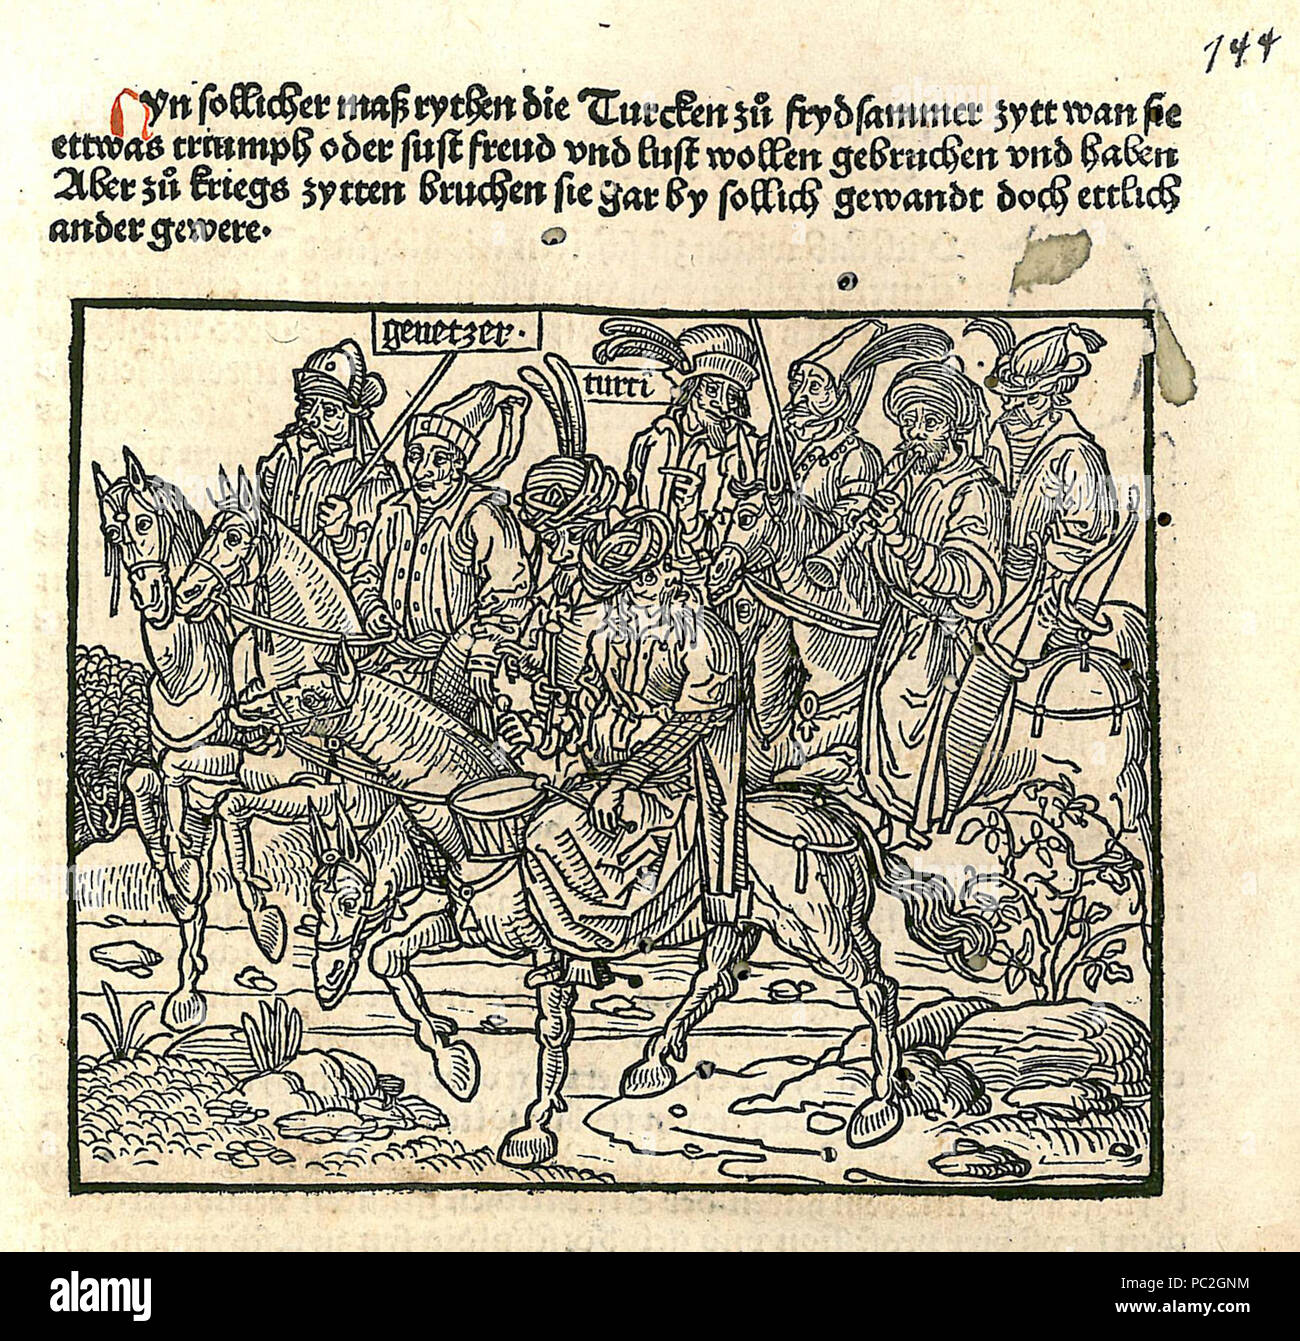 144
Yn sollicher maß rythen die Turcken zů frydsammer zytt wan sie
ettwas triumph oder sust freud vnd lust wollen gebruchen vnd haben
Aber zů kriegs zytten bruchen sie gar by sollich gewandt doch ettlich
ander gewere.
genetzer.
turci
a alamy stock photo
alamy
Image ID: PC2GNM
www.alamy.com